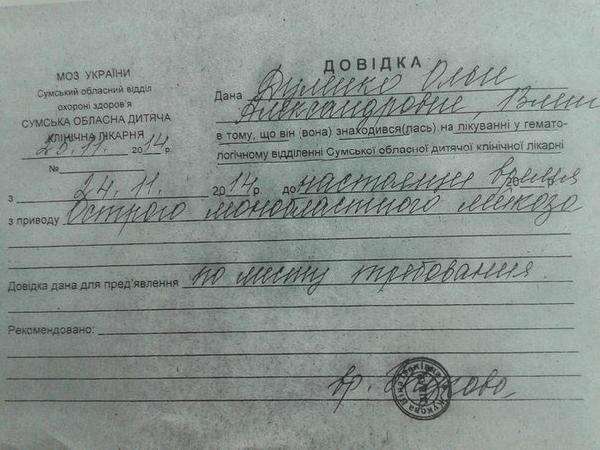 МОЗ УКРАЇНИ
Сумський обласний відділ
охорони здоров'я
СУМСЬКА ОБЛАСНА ДИТЯЧА
КЛІНІЧНА ЛІКАРНЯ
25.11. 2014р.
№
ДОВІДКА
Дана Ольги
Александровне 13лет
в тому, що він (вона) знаходився(лась) на лікуванні у гемато-
логічному відділенні Сумської обласної дитячої клінічної лікарні
з 24.11. 2014 р. до настоящи время
з приводу Острого монобластного лейкоза
Довідка дана для пред'явлення по месту требования.
Рекомендовано:
вр.